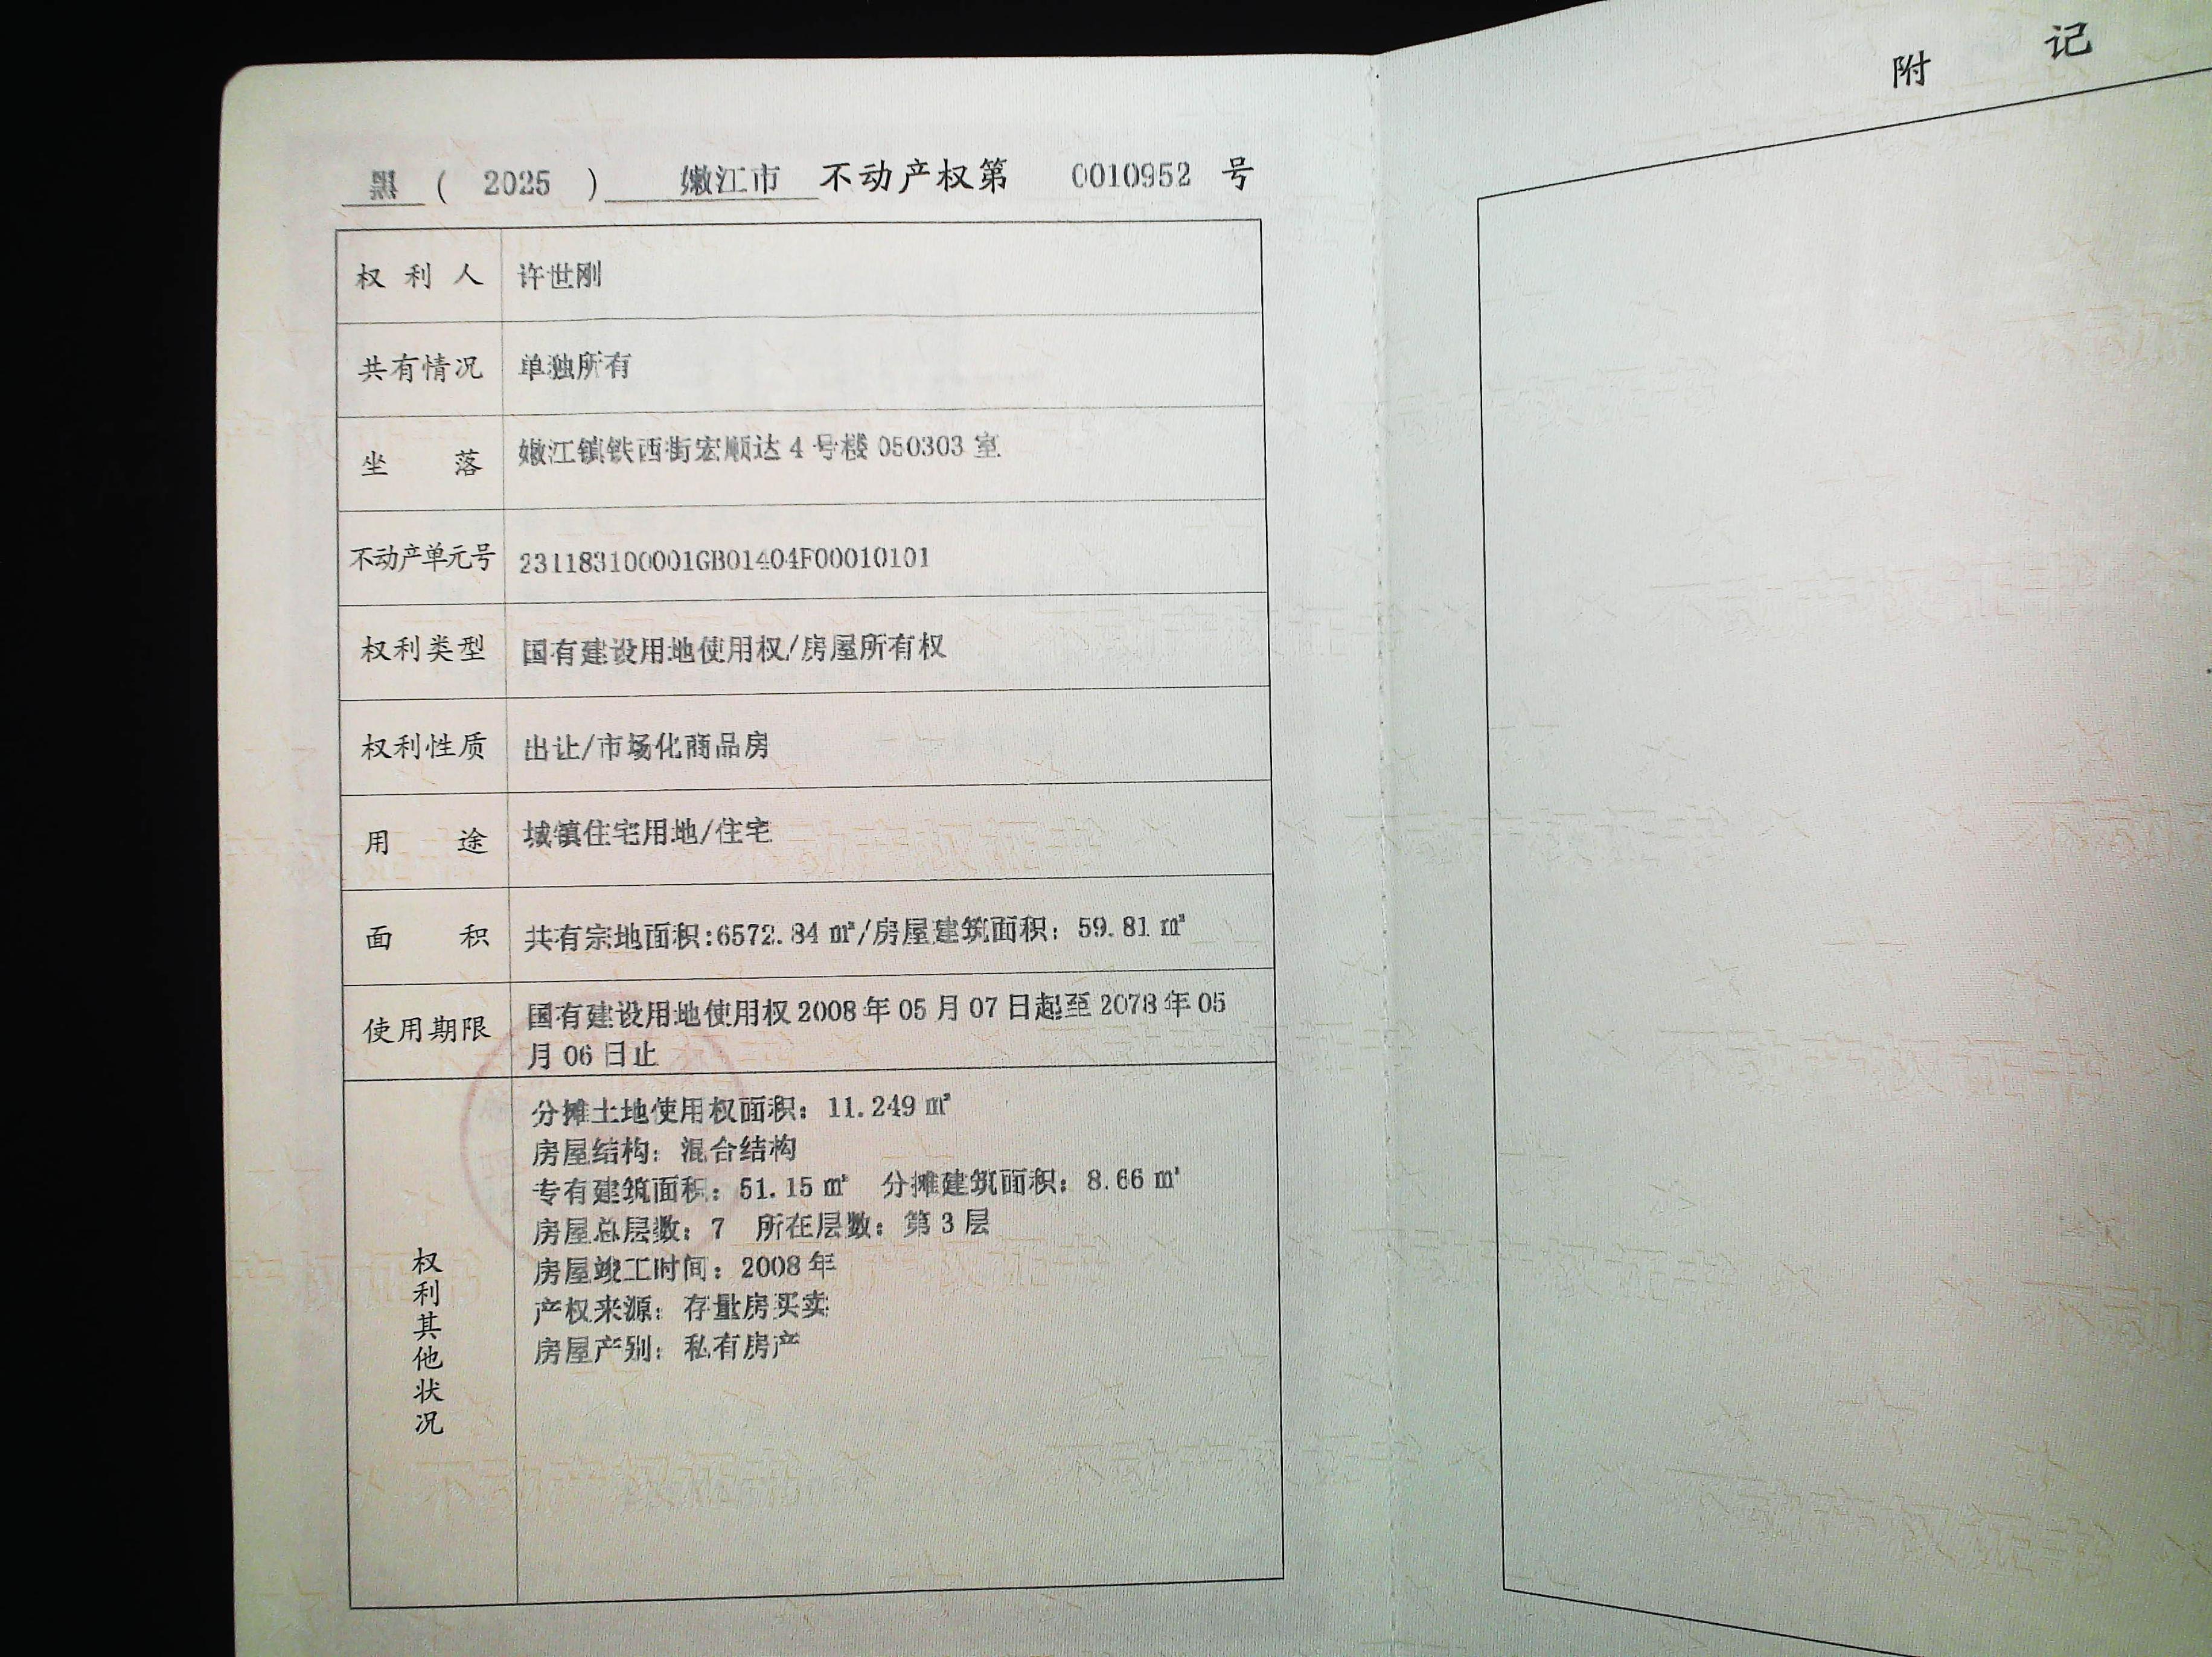 黑 ( 2025 ) 嫩江市 不动产权第 0010952 号
权利人 许世刚
共有情况 单独所有
坐落 嫩江镇铁西街宏顺达 4 号楼 050303 室
不动产单元号 231183100001GB01404F00010101
权利类型 国有建设用地使用权/房屋所有权
权利性质 出让/市场化商品房
用途 城镇住宅用地/住宅
面积 共有宗地面积:6572.84 ㎡/房屋建筑面积：59.81 ㎡
使用期限 国有建设用地使用权 2008 年 05 月 07 日起至 2078 年 05
月 06 日止
权利其他状况
分摊土地使用权面积：11.249 ㎡
房屋结构：混合结构
专有建筑面积：51.15 ㎡ 分摊建筑面积：8.66 ㎡
房屋总层数：7 所在层数：第 3 层
房屋竣工时间：2008 年
产权来源：存量房买卖
房屋产别：私有房产
附记